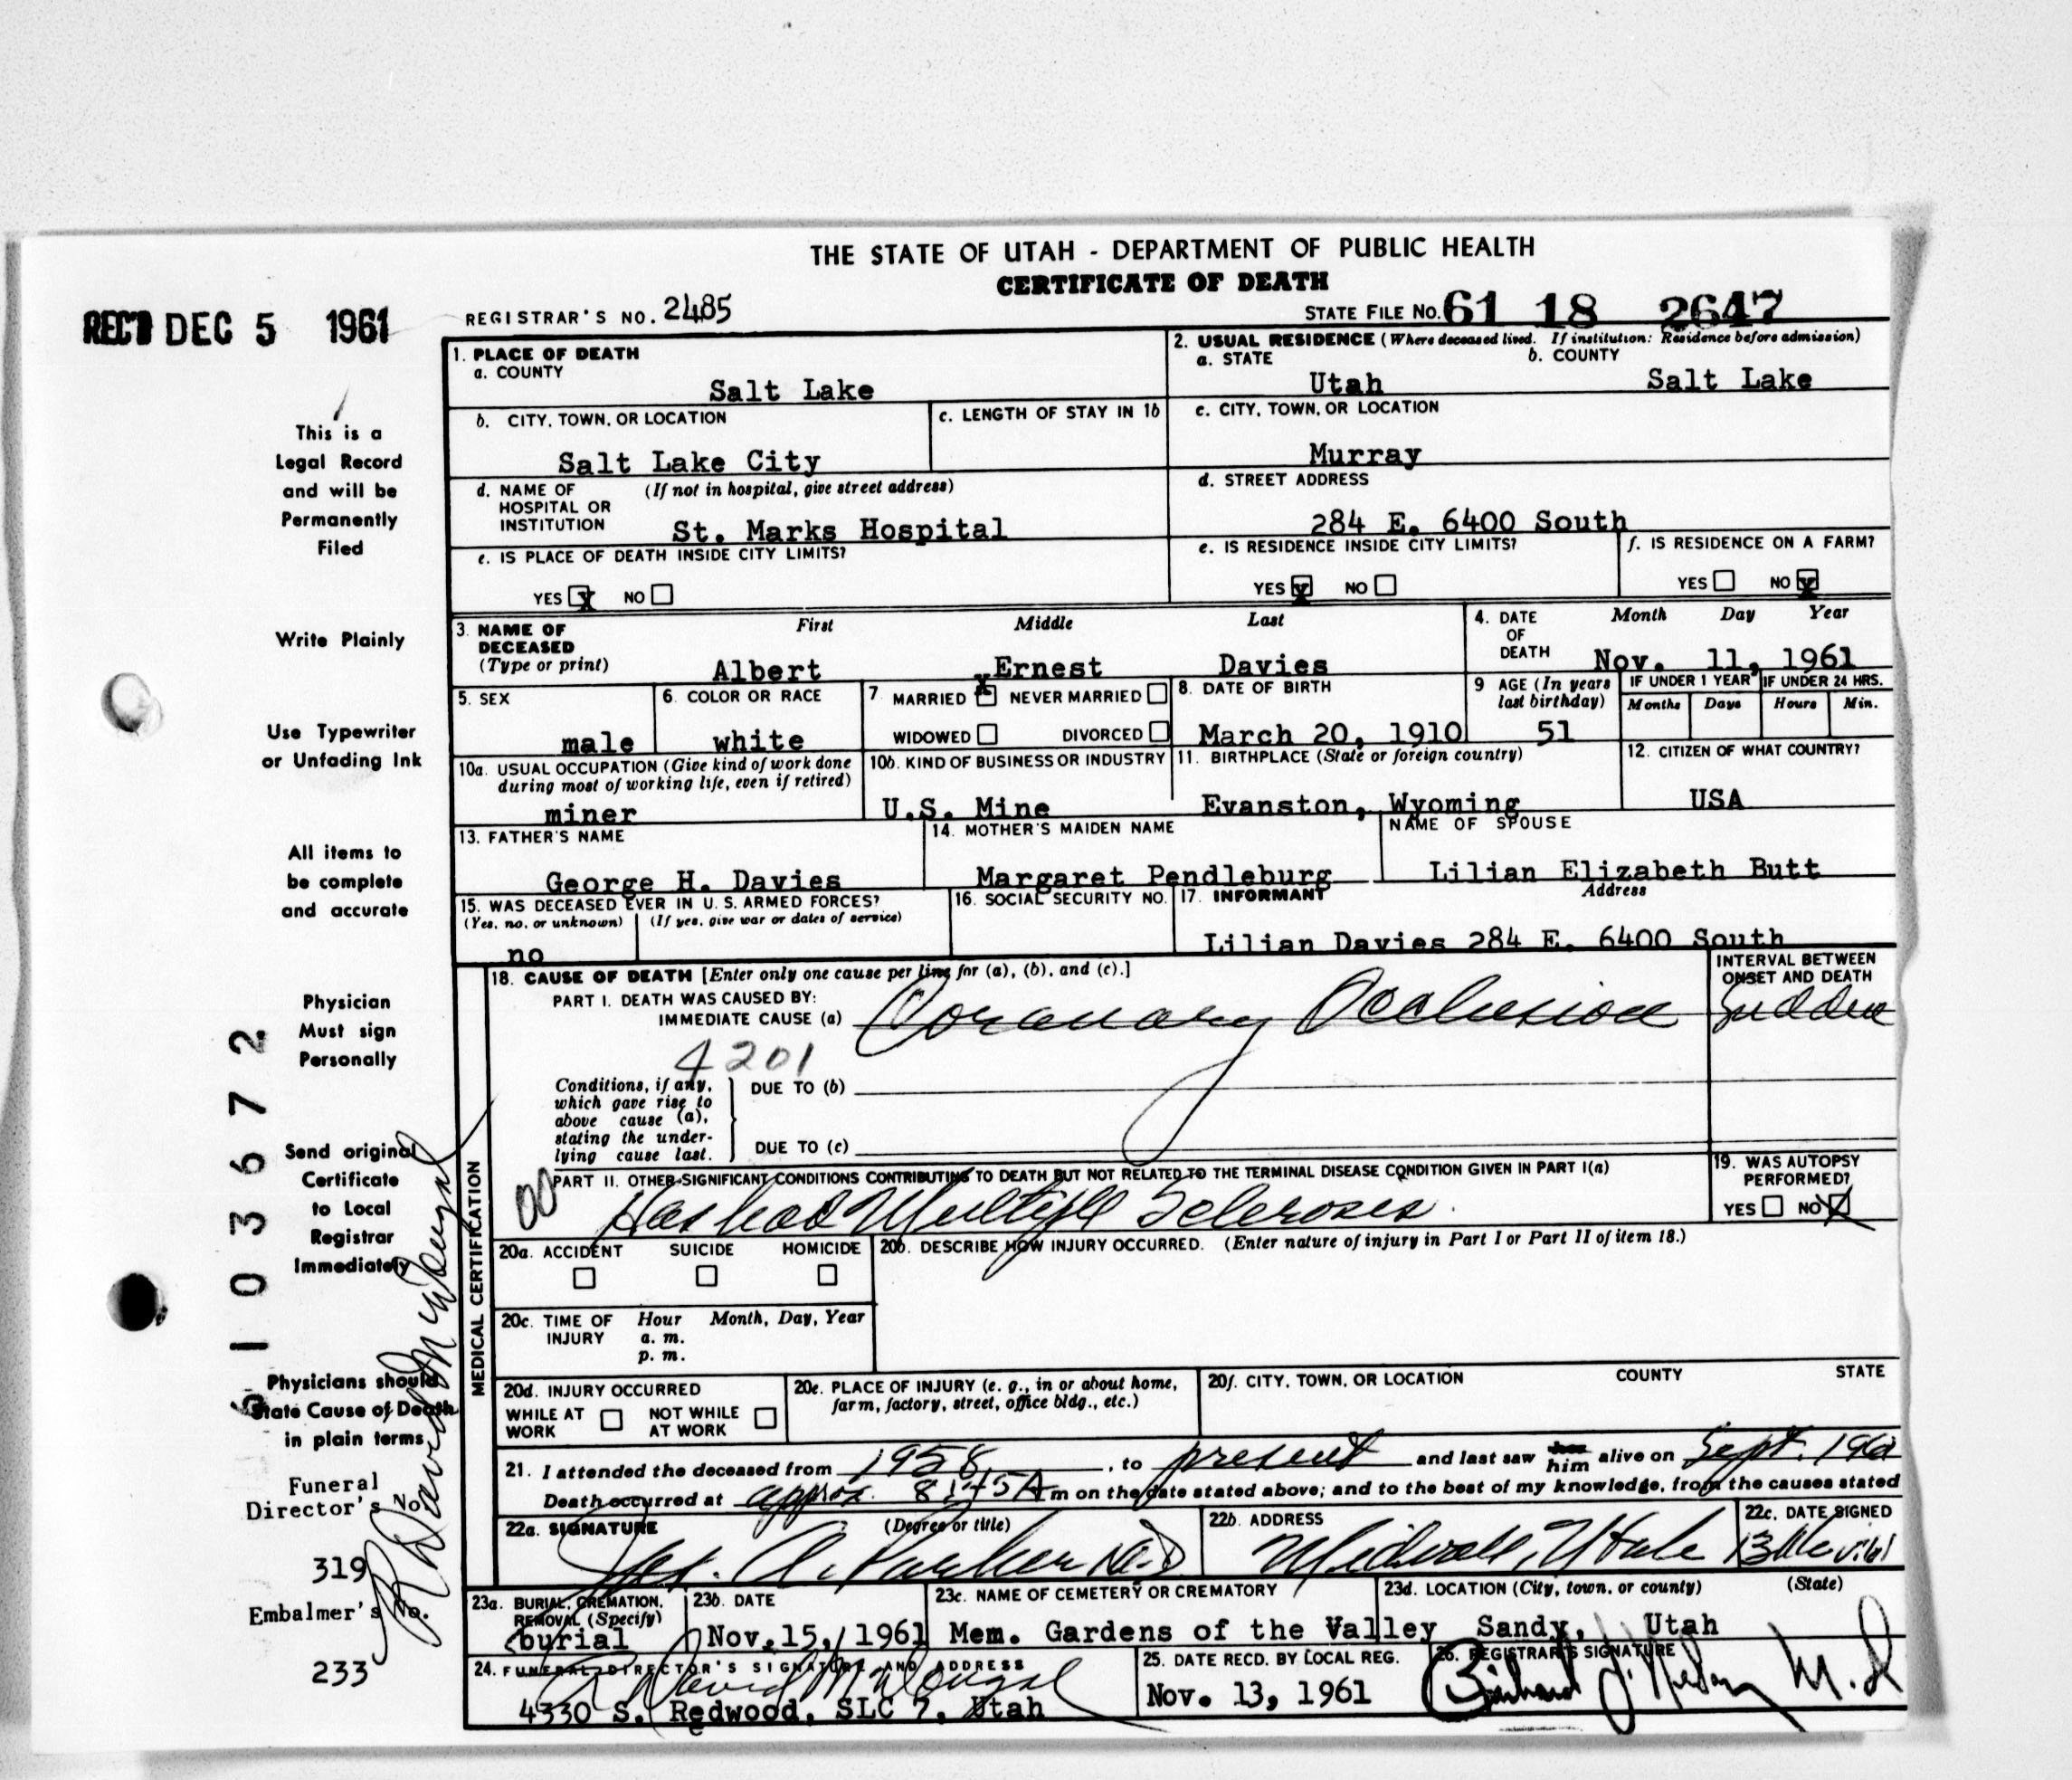 THE STATE OF UTAH - DEPARTMENT OF PUBLIC HEALTH
CERTIFICATE OF DEATH
REC'D DEC 5 1961
REGISTRAR'S NO. 2485
STATE FILE NO. 61 18 2647
1. PLACE OF DEATH
a. COUNTY
Salt Lake
2. USUAL RESIDENCE (Where deceased lived. If institution: Residence before admission)
a. STATE b. COUNTY
Utah Salt Lake
b. CITY, TOWN, OR LOCATION
Salt Lake City
c. LENGTH OF STAY IN 1b
c. CITY, TOWN, OR LOCATION
Murray
d. NAME OF (If not in hospital, give street address)
HOSPITAL OR
INSTITUTION St. Marks Hospital
d. STREET ADDRESS
284 E. 6400 South
e. IS PLACE OF DEATH INSIDE CITY LIMITS?
YES X NO
e. IS RESIDENCE INSIDE CITY LIMITS?
YES X NO
f. IS RESIDENCE ON A FARM?
YES NO X
3. NAME OF First Middle Last
DECEASED
(Type or print) Albert Ernest Davies
4. DATE Month Day Year
OF
DEATH Nov. 11, 1961
5. SEX
male
6. COLOR OR RACE
white
7 MARRIED X NEVER MARRIED
WIDOWED DIVORCED
8. DATE OF BIRTH
March 20, 1910
9 AGE (In years
last birthday)
51
IF UNDER 1 YEAR
Months Days
IF UNDER 24 HRS.
Hours Min.
10a. USUAL OCCUPATION (Give kind of work done
during most of working life, even if retired)
miner
10b. KIND OF BUSINESS OR INDUSTRY
U.S. Mine
11. BIRTHPLACE (State or foreign country)
Evanston, Wyoming
12. CITIZEN OF WHAT COUNTRY?
USA
13. FATHER'S NAME
George H. Davies
14. MOTHER'S MAIDEN NAME
Margaret Pendleburg
NAME OF SPOUSE
Lilian Elizabeth Butt
15. WAS DECEASED EVER IN U.S. ARMED FORCES?
(Yes, no, or unknown) (If yes, give war or dates of service)
no
16. SOCIAL SECURITY NO.
17. INFORMANT Address
Lilian Davies 284 E. 6400 South
MEDICAL CERTIFICATION
18. CAUSE OF DEATH [Enter only one cause per line for (a), (b), and (c).]
PART I. DEATH WAS CAUSED BY:
IMMEDIATE CAUSE (a) Coronary Occlusion
INTERVAL BETWEEN
ONSET AND DEATH
Sudden
4201
Conditions, if any,
which gave rise to
above cause (a),
stating the under-
lying cause last.
DUE TO (b)
DUE TO (c)
00
PART II. OTHER SIGNIFICANT CONDITIONS CONTRIBUTING TO DEATH BUT NOT RELATED TO THE TERMINAL DISEASE CONDITION GIVEN IN PART I(a)
Has had Multiple Sclerosis.
19. WAS AUTOPSY
PERFORMED?
YES NO X
20a. ACCIDENT SUICIDE HOMICIDE
20b. DESCRIBE HOW INJURY OCCURRED. (Enter nature of injury in Part I or Part II of item 18.)
20c. TIME OF Hour Month, Day, Year
INJURY a. m.
p. m.
20d. INJURY OCCURRED
WHILE AT NOT WHILE
WORK AT WORK
20e. PLACE OF INJURY (e. g., in or about home,
farm, factory, street, office bldg., etc.)
20f. CITY, TOWN, OR LOCATION COUNTY STATE
21. I attended the deceased from 1958, to present and last saw her him alive on Sept. 1961
Death occurred at approx. 8:45 A m on the date stated above; and to the best of my knowledge, from the causes stated
22a. SIGNATURE (Degree or title)
A. Parker M.D
22b. ADDRESS
Midvale, Utah
22c. DATE SIGNED
13 Nov. 61
23a. BURIAL, CREMATION,
REMOVAL (Specify)
burial
23b. DATE
Nov. 15, 1961
23c. NAME OF CEMETERY OR CREMATORY
Mem. Gardens of the Valley
23d. LOCATION (City, town, or county) (State)
Sandy, Utah
24. FUNERAL DIRECTOR'S SIGNATURE AND ADDRESS
R David McDougal
4330 S. Redwood, SLC 7, Utah
25. DATE RECD. BY LOCAL REG.
Nov. 13, 1961
26. REGISTRAR'S SIGNATURE
M.D
This is a
Legal Record
and will be
Permanently
Filed
Write Plainly
Use Typewriter
or Unfading Ink
All items to
be complete
and accurate
Physician
Must sign
Personally
Send original
Certificate
to Local
Registrar
Immediately
Physicians should
State Cause of Death
in plain terms
Funeral
Director's No.
319
Embalmer's No.
233
R David McDougal
6103672